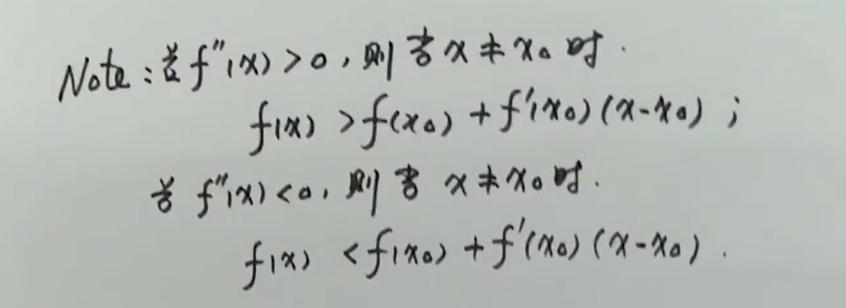 Note：若 f''(x) > 0，则当 x ≠ x₀ 时.
f(x) > f(x₀) + f'(x₀)(x-x₀)；
若 f''(x) < 0，则当 x ≠ x₀ 时.
f(x) < f(x₀) + f'(x₀)(x-x₀).